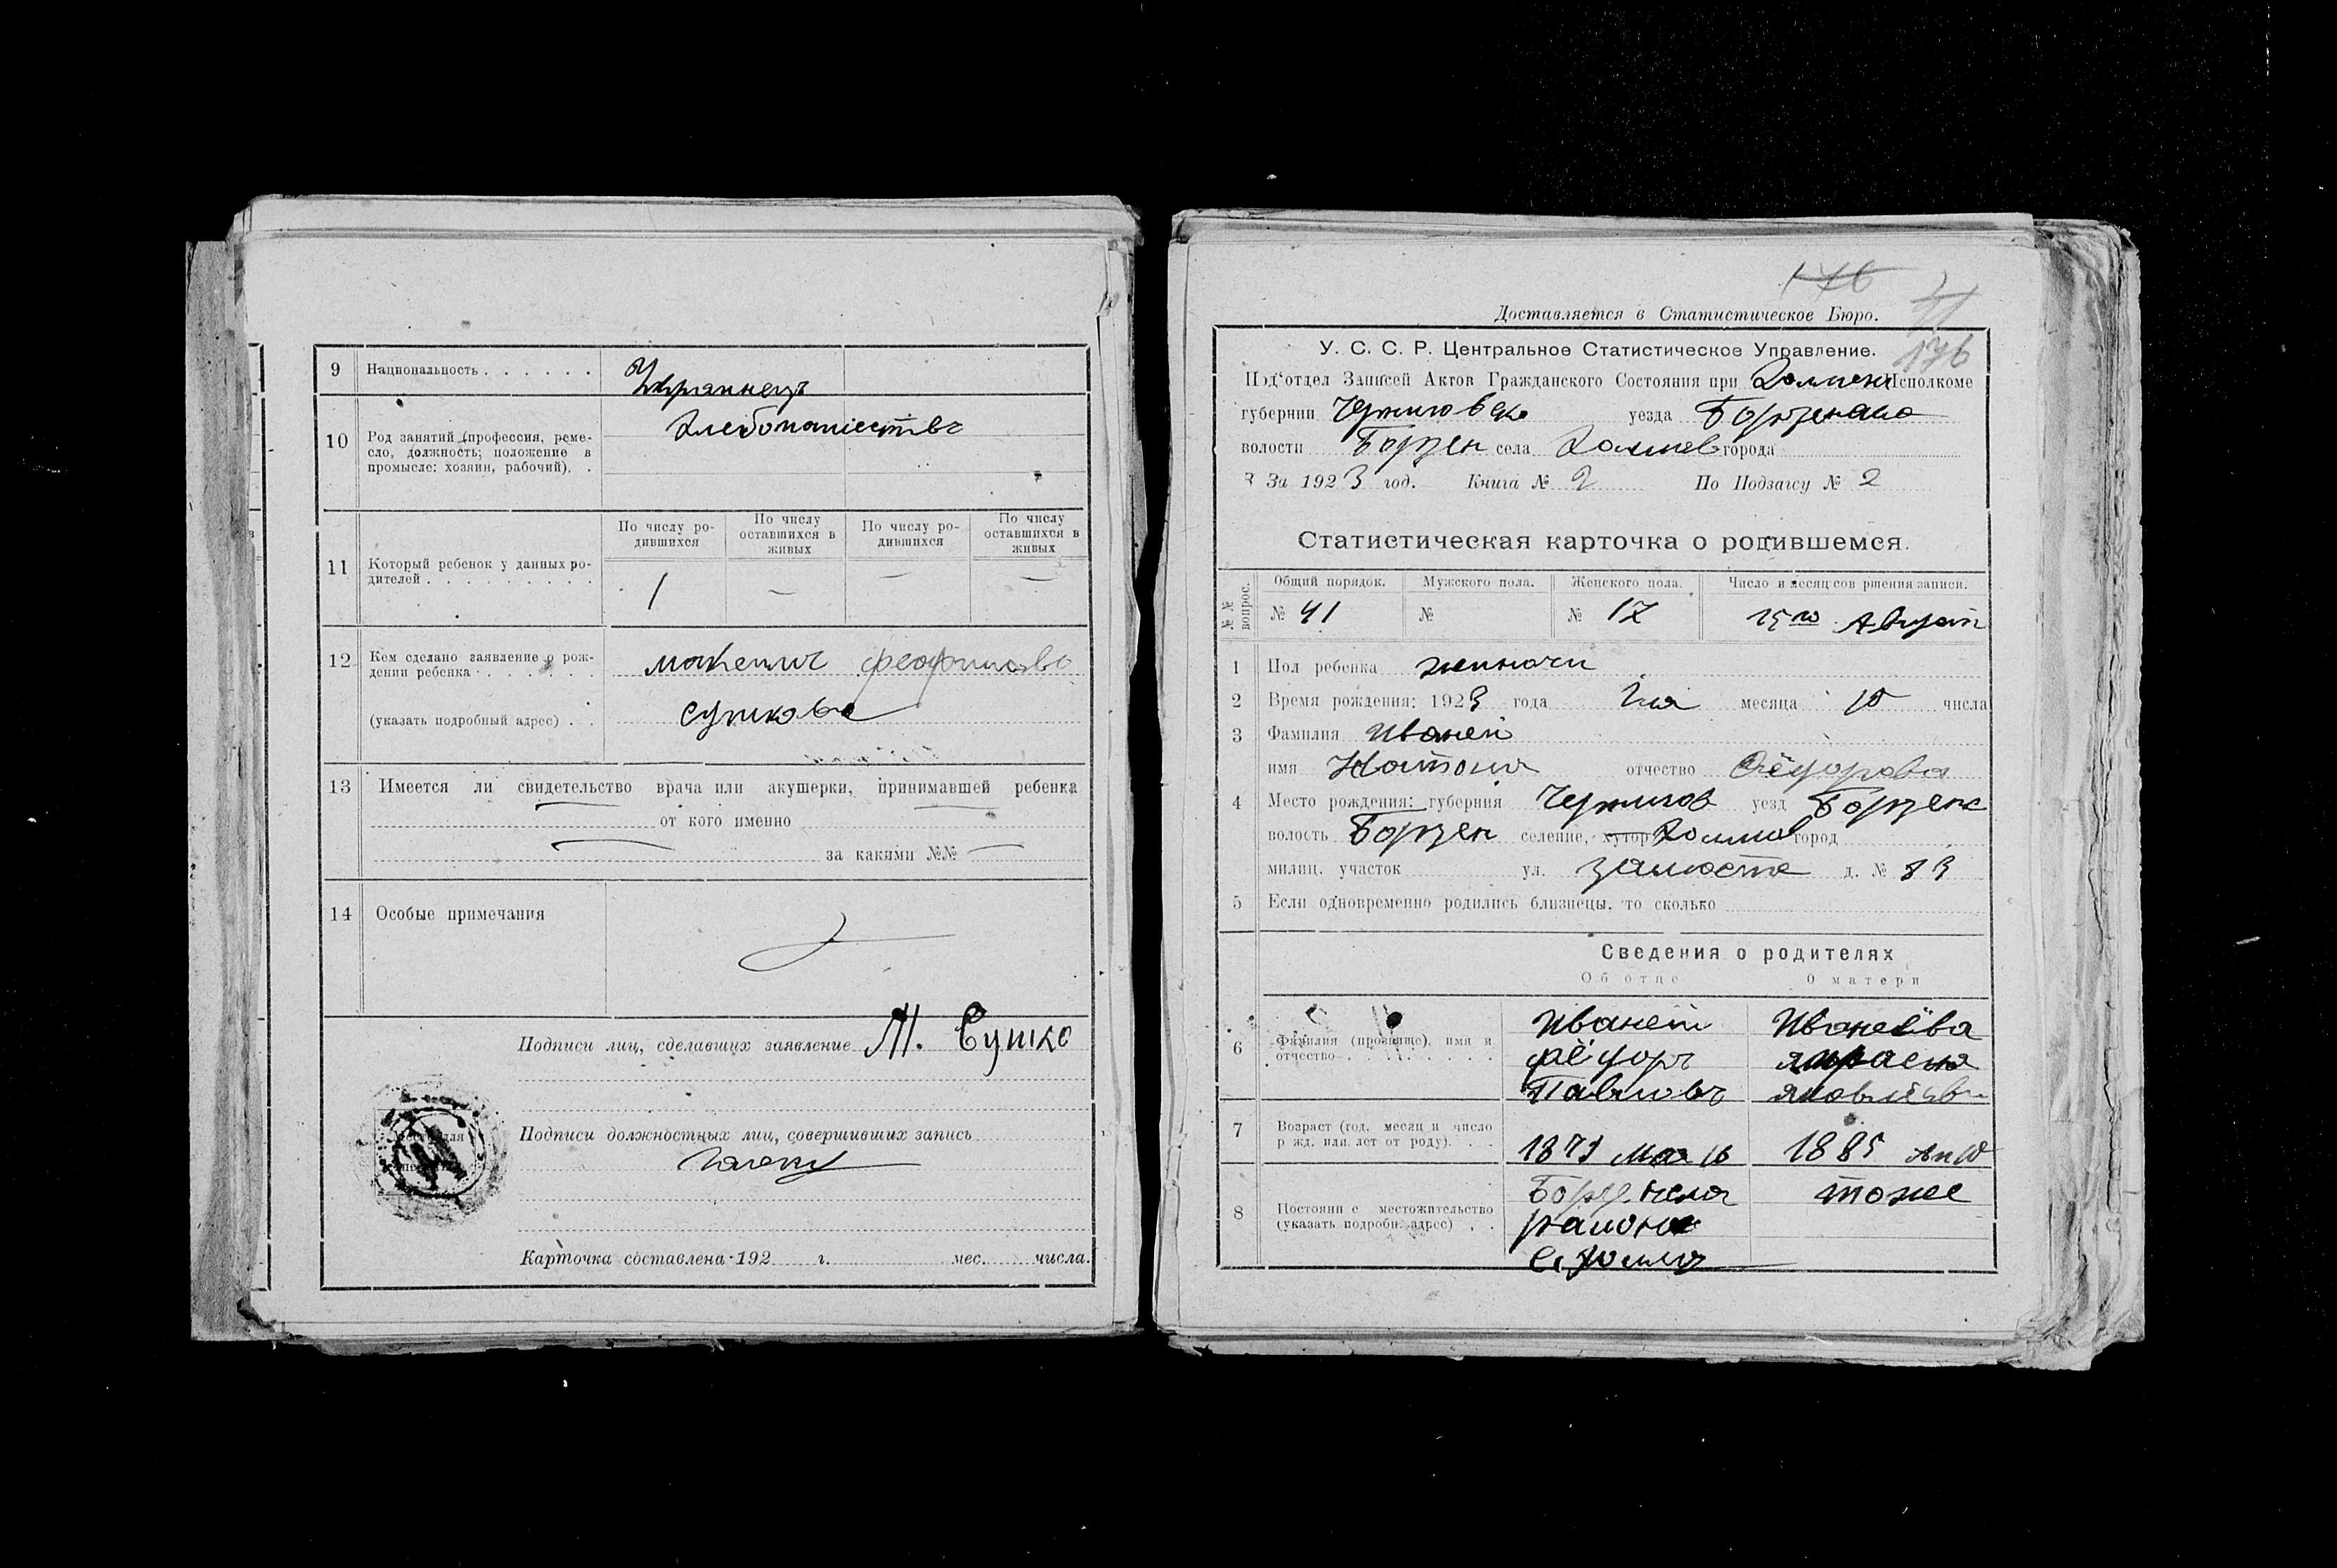 9 Национальность
Украинець
10 Род занятий (профессия, реме-
сло, должность; положение в
промысле: хозяин, рабочий).
11 Который ребенок у данных ро-
дителей
По числу ро-
дившихся
По числу
оставшихся в
живых
По числу ро-
дившихся
По числу
оставшихся в
живых
1 — — —
12 Кем сделано заявление о рож-
дении ребенка
(указать подробный адрес)
13 Имеется ли свидетельство врача или акушерки, принимавшей ребенка
от кого именно
за какими №№ —
14 Особые примечания
Подписи лиц, сделавших заявление М. Сушко
Подписи должностных лиц, совершивших запись
Карточка составлена 192 г. мес. числа.
176
Доставляется в Статистическое Бюро.
41
176
У. С. С. Р. Центральное Статистическое Управление.
Под‘отдел Записей Актов Гражданского Состояния при Исполкоме
губернии уезда
волости Борзен села города
За 1923 год. Книга № 2 По Подзагсу № 2
Статистическая карточка о родившемся.
№№ вопрос.
Общий порядок. Мужского пола. Женского пола. Число и месяц сов ршения записи.
№ 41 № № 17 15го Август
1 Пол ребенка
2 Время рождения: 1923 года месяца 10 числа
3 Фамилия Иваней
имя отчество Фёдорова
4 Место рождения: губерния Чернигов уезд Борзенс
волость Борзен селение, хутор город
милиц. участок ул. д. № 83
5 Если одновременно родились близнецы, то сколько
Сведения о родителях
Об отце О матери
6 Фамилия (прозвище), имя и
отчество
Иваней
фёдоръ
Павловъ
Иванеёва
7 Возраст (год, месяц и число
р жд. или лет от роду).
1885 Ап 10
8 Постоянн е местожительство
(указать подробн. адрес)
района
тоже